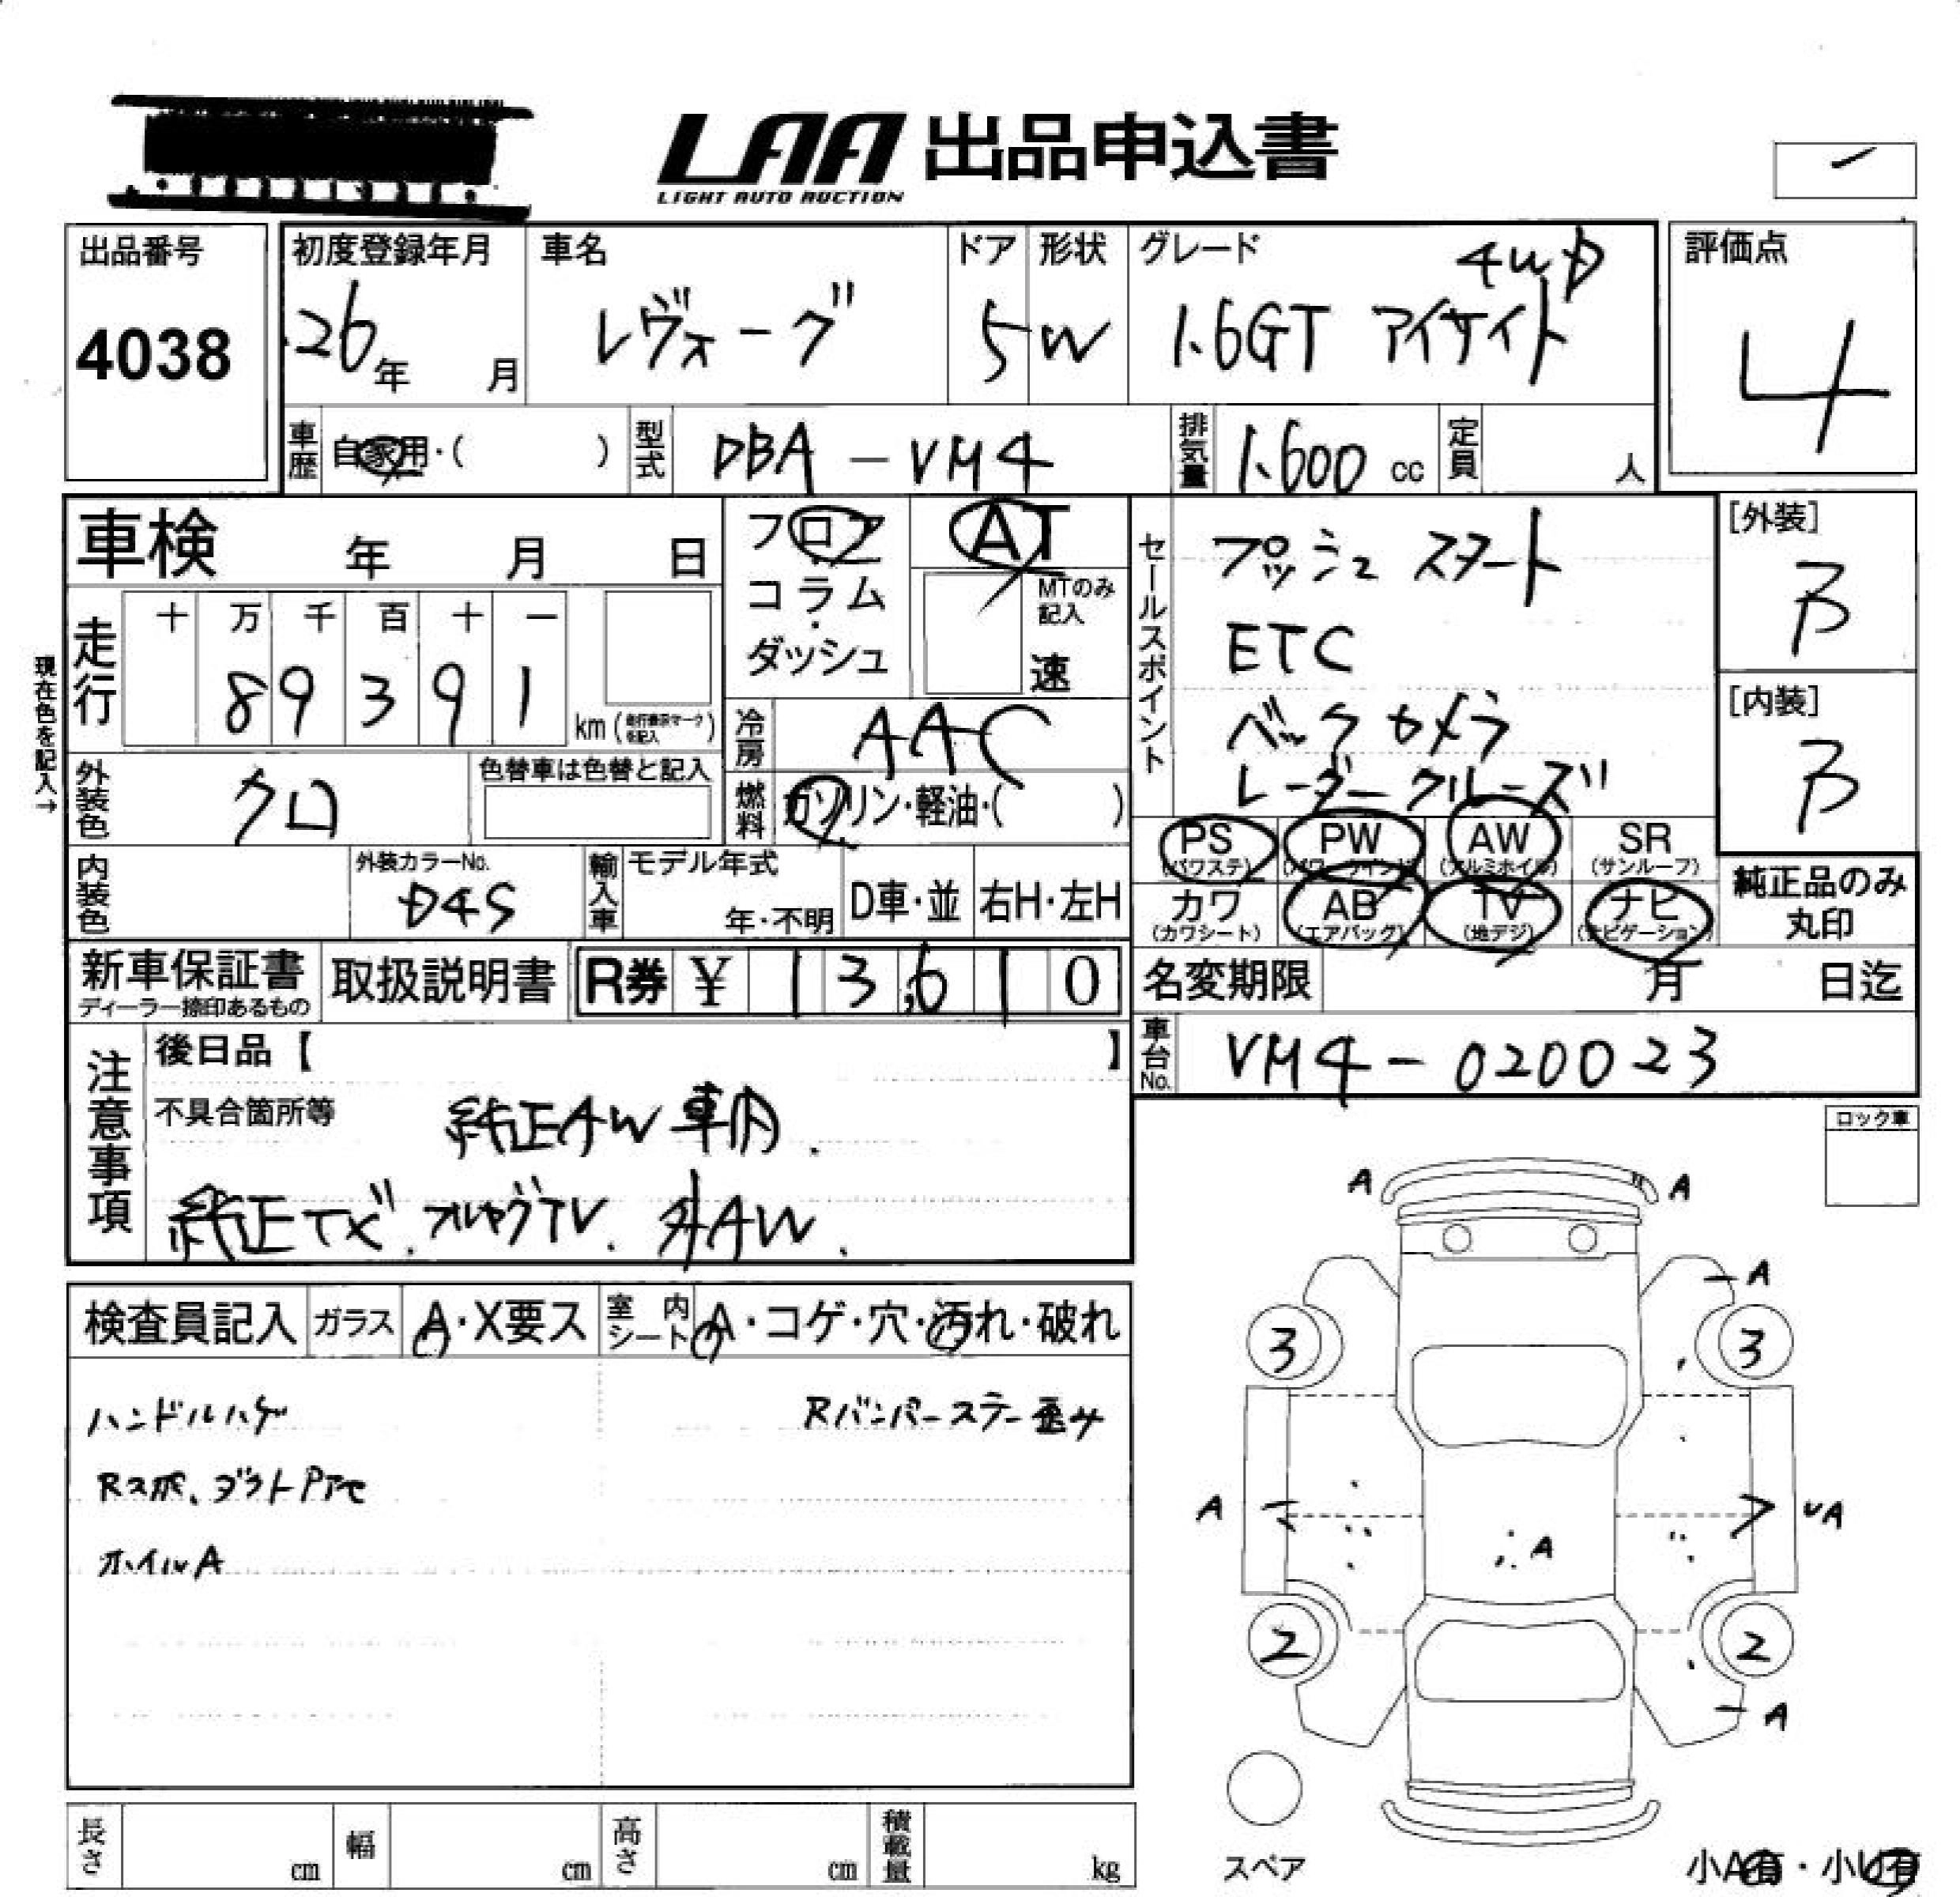 LAA 出品申込書
LIGHT AUTO AUCTION
出品番号
4038
初度登録年月
26年 月
車名
レヴォーグ
ドア
5
形状
W
グレード
4WD
1.6GT アイサイト
評価点
4
車歴
自家用・( )
型式
DBA-VM4
排気量
1.600 cc
定員
人
車検 年 月 日
現在色を記入→
走行
十 万 千 百 十 一
8 9 3 9 1
km (走行表示マークを記入)
フロア
コラム
・
ダッシュ
AT
MTのみ
記入
速
冷房
AAC
燃料
ガソリン・軽油・( )
セールスポイント
プッシュスタート
ETC
バックカメラ
レーダークルーズ
[外装]
B
[内装]
B
外装色
クロ
色替車は色替と記入
内装色
外装カラーNo.
D4S
輸入車
モデル年式
年・不明
D車・並
右H・左H
PS
(パワステ)
PW
(パワーウインドウ)
AW
(アルミホイル)
SR
(サンルーフ)
カワ
(カワシート)
AB
(エアバッグ)
TV
(地デジ)
ナビ
(ナビゲーション)
純正品のみ
丸印
新車保証書
ディーラー捺印あるもの
取扱説明書
R券 ¥ 13,610
名変期限 月 日迄
車台No.
VM4-020023
注意事項
後日品【 】
不具合箇所等
純正AW車用.
純正ナビ.フルセグTV.外AW.
ロック車
検査員記入
ガラス
A・X要ス
室内
シート
A・コゲ・穴・汚れ・破れ
ハンドルハゲ
Rバンパーステー歪み
Rスポ、ダクトPアセ
ホイルA
A A
A
3 3
A A
A
2 2
A
スペア
小A有・小U有
長さ cm
幅 cm
高さ cm
積載量 kg